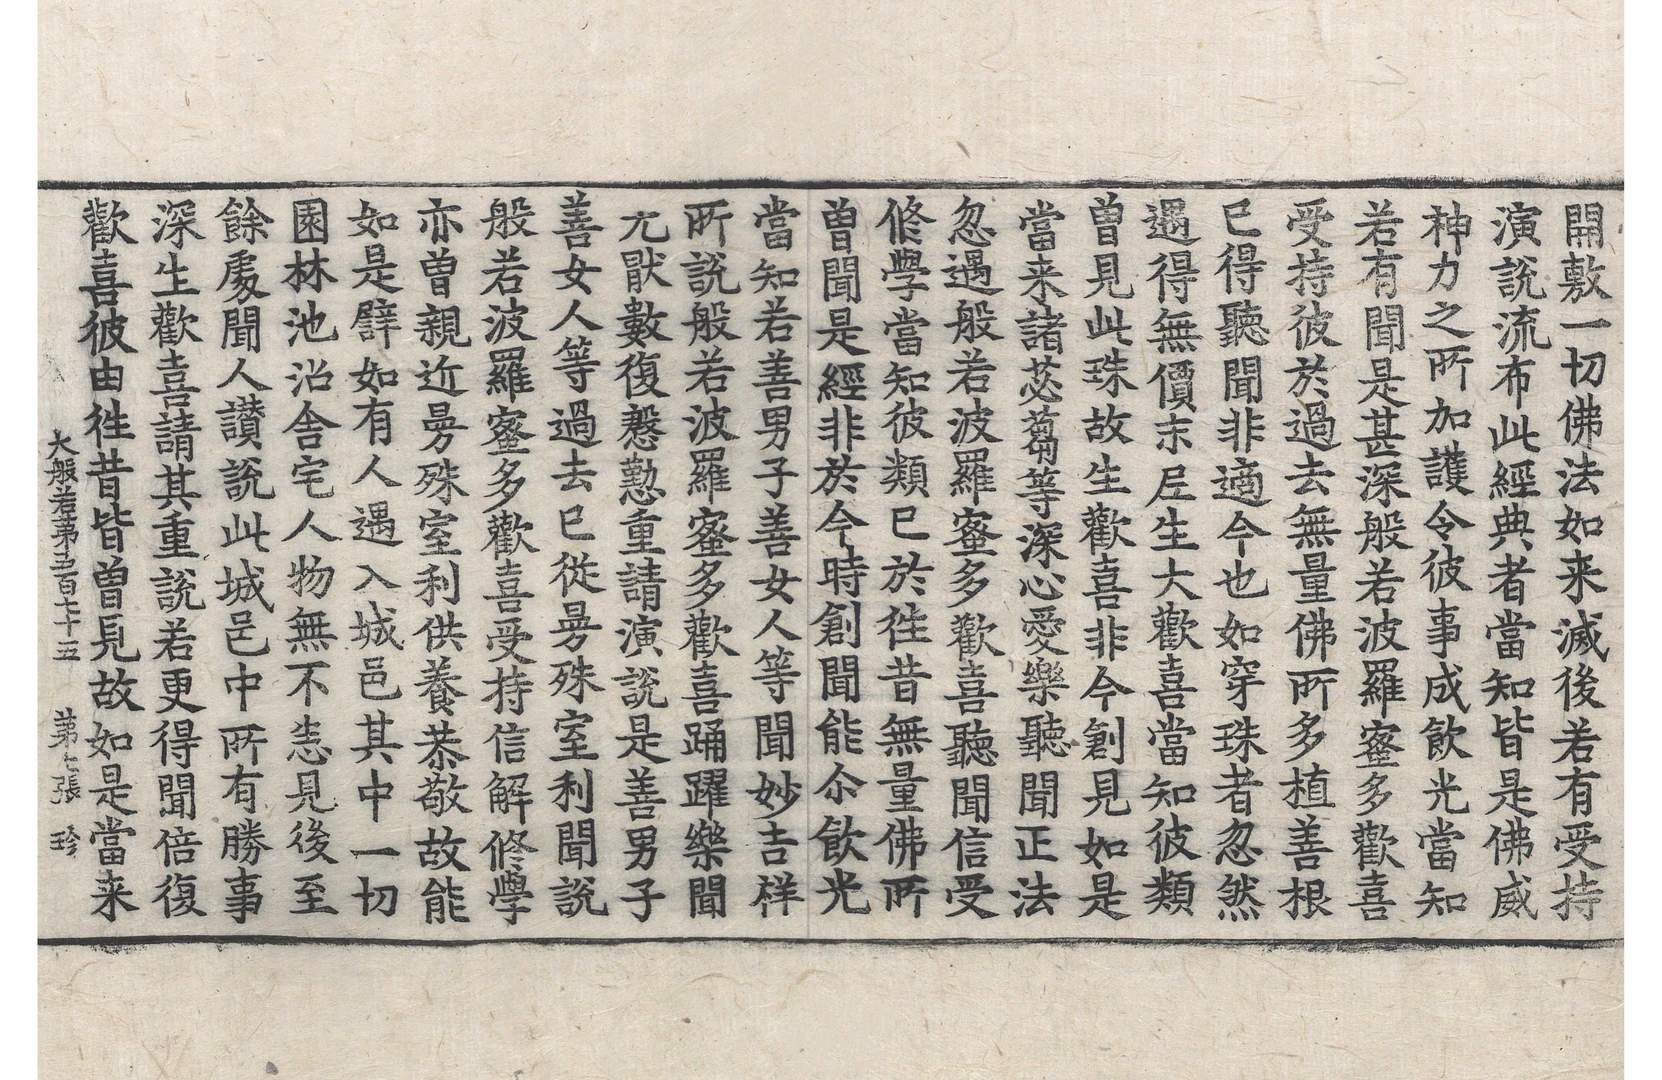 開敷一切佛法如来滅後若有受持
演說流布此經典者當知皆是佛威
神力之所加護令彼事成飮光當知
若有聞是甚深般若波羅蜜多歡喜
受持彼於過去無量佛所多植善根
已得聽聞非適今也如穿珠者忽然
遇得無價末尼生大歡喜當知彼類
曽見此珠故生歡喜非今創見如是
當来諸苾蒭等深心愛樂聽聞正法
忽遇般若波羅蜜多歡喜聽聞信受
修學當知彼類已於徃昔無量佛所
曽聞是經非於今時創聞能尒飮光
當知若善男子善女人等聞妙吉祥
所說般若波羅蜜多歡喜踊躍樂聞
无猒數復慇懃重請演說是善男子
善女人等過去已從曼殊室利聞說
般若波羅蜜多歡喜受持信解修學
亦曽親近曼殊室利供養恭敬故能
如是譬如有人遇入城邑其中一切
園林池沼舍宅人物無不悉見後至
餘處聞人讃說此城邑中所有勝事
深生歡喜請其重說若更得聞倍復
歡喜彼由徃昔皆曽見故如是當来
大般若第五百七十五 第七張 珍